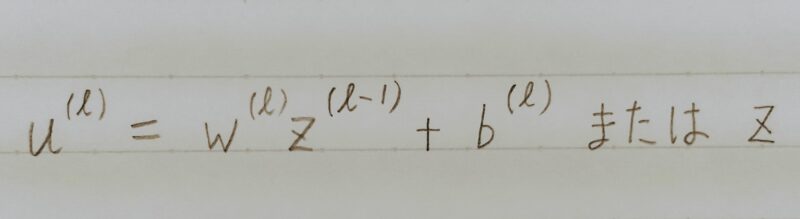 u^(l) = w^(l) z^(l-1) + b^(l) または z